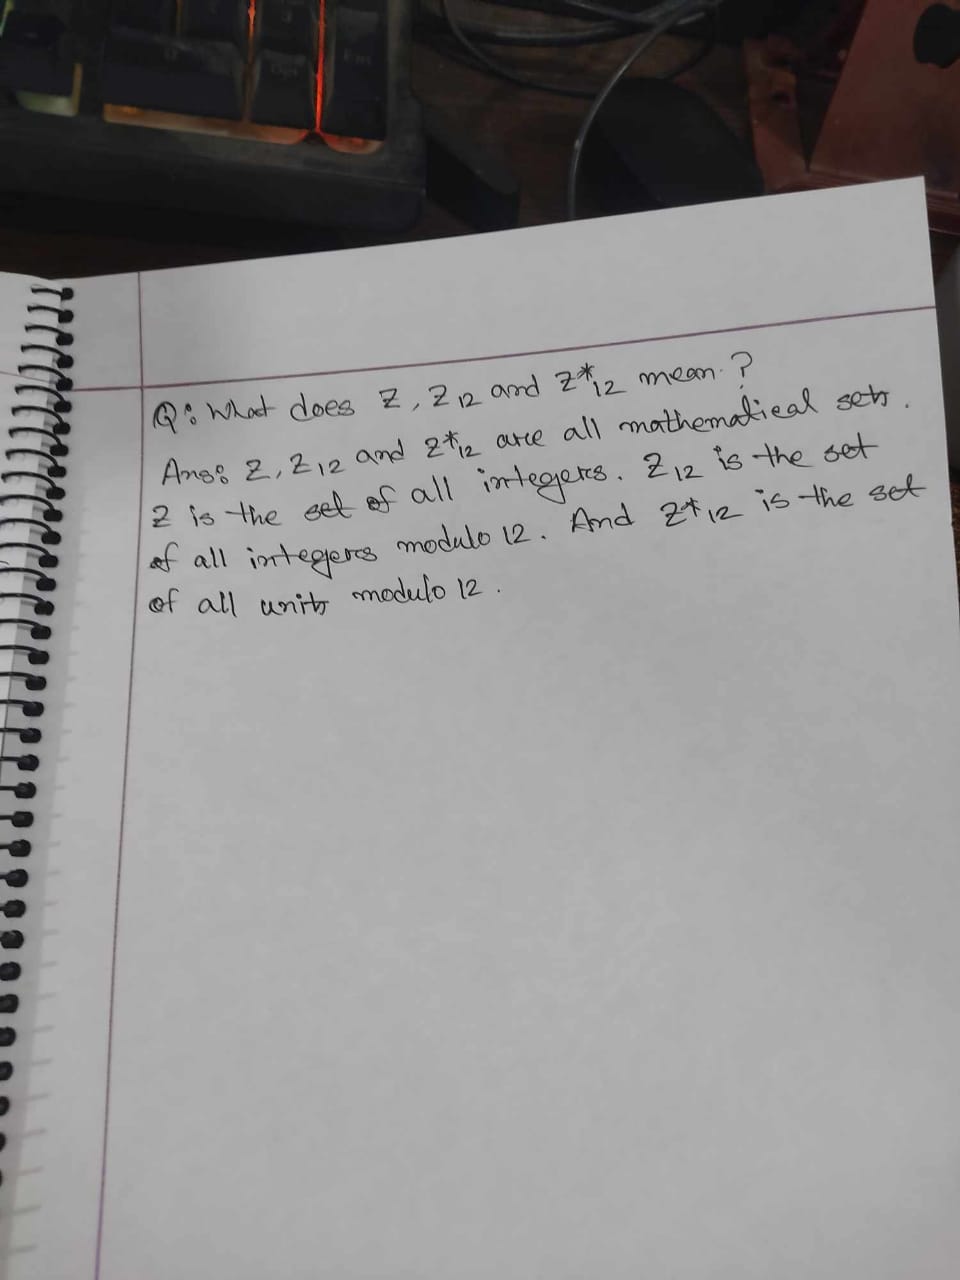 Q: What does Z, Z12 and Z*12 mean ?
Ans: Z, Z12 and Z*12 are all mathematical sets.
Z is the set of all integers. Z12 is the set
of all integers modulo 12. And Z*12 is the set
of all units modulo 12.